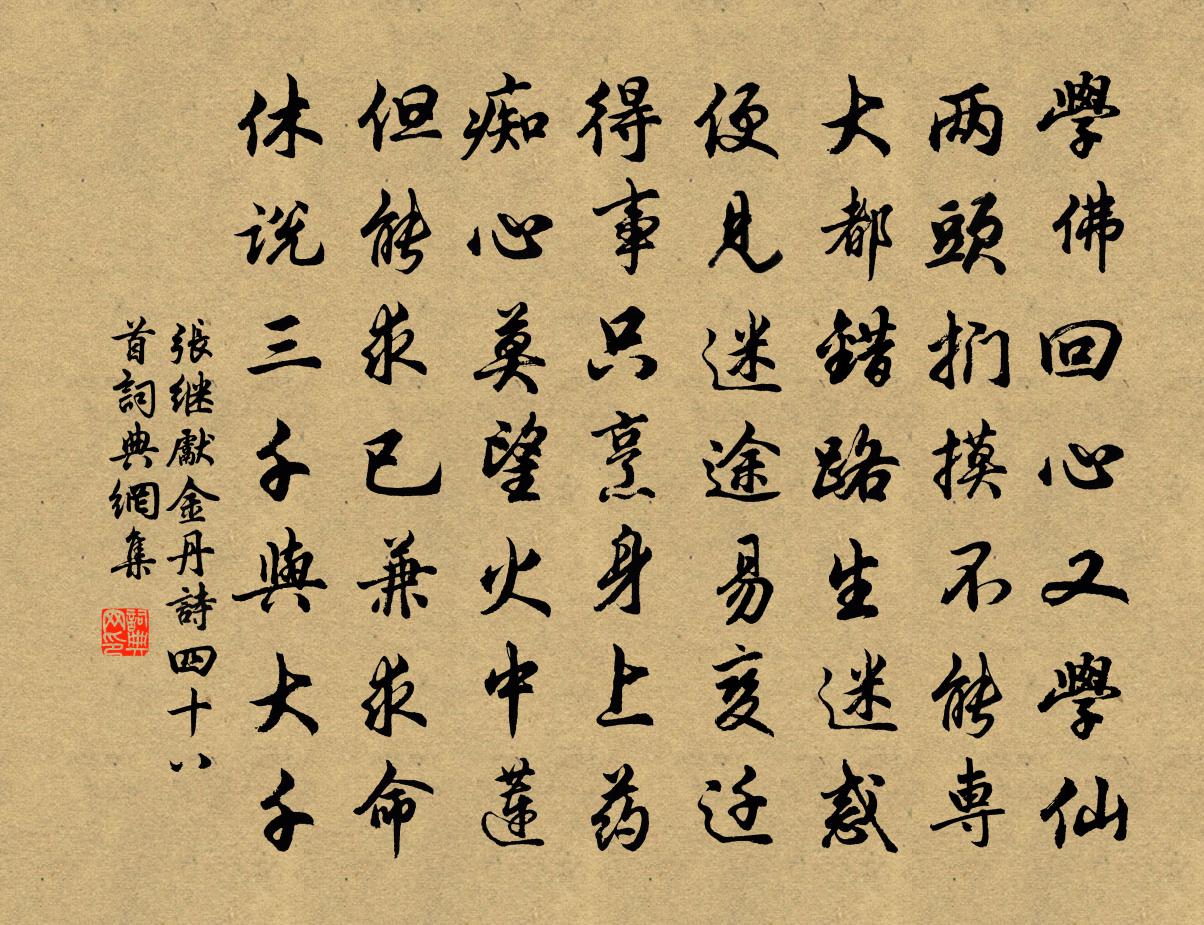 學佛回心又學仙
两頭捫摸不能專
大都錯路生迷惑
便見迷途易变迁
得事只烹身上药
痴心莫望火中蓮
但能求已兼求命
休説三千與大千
張继獻金丹詩四十八
首詞典網集
詞典网印